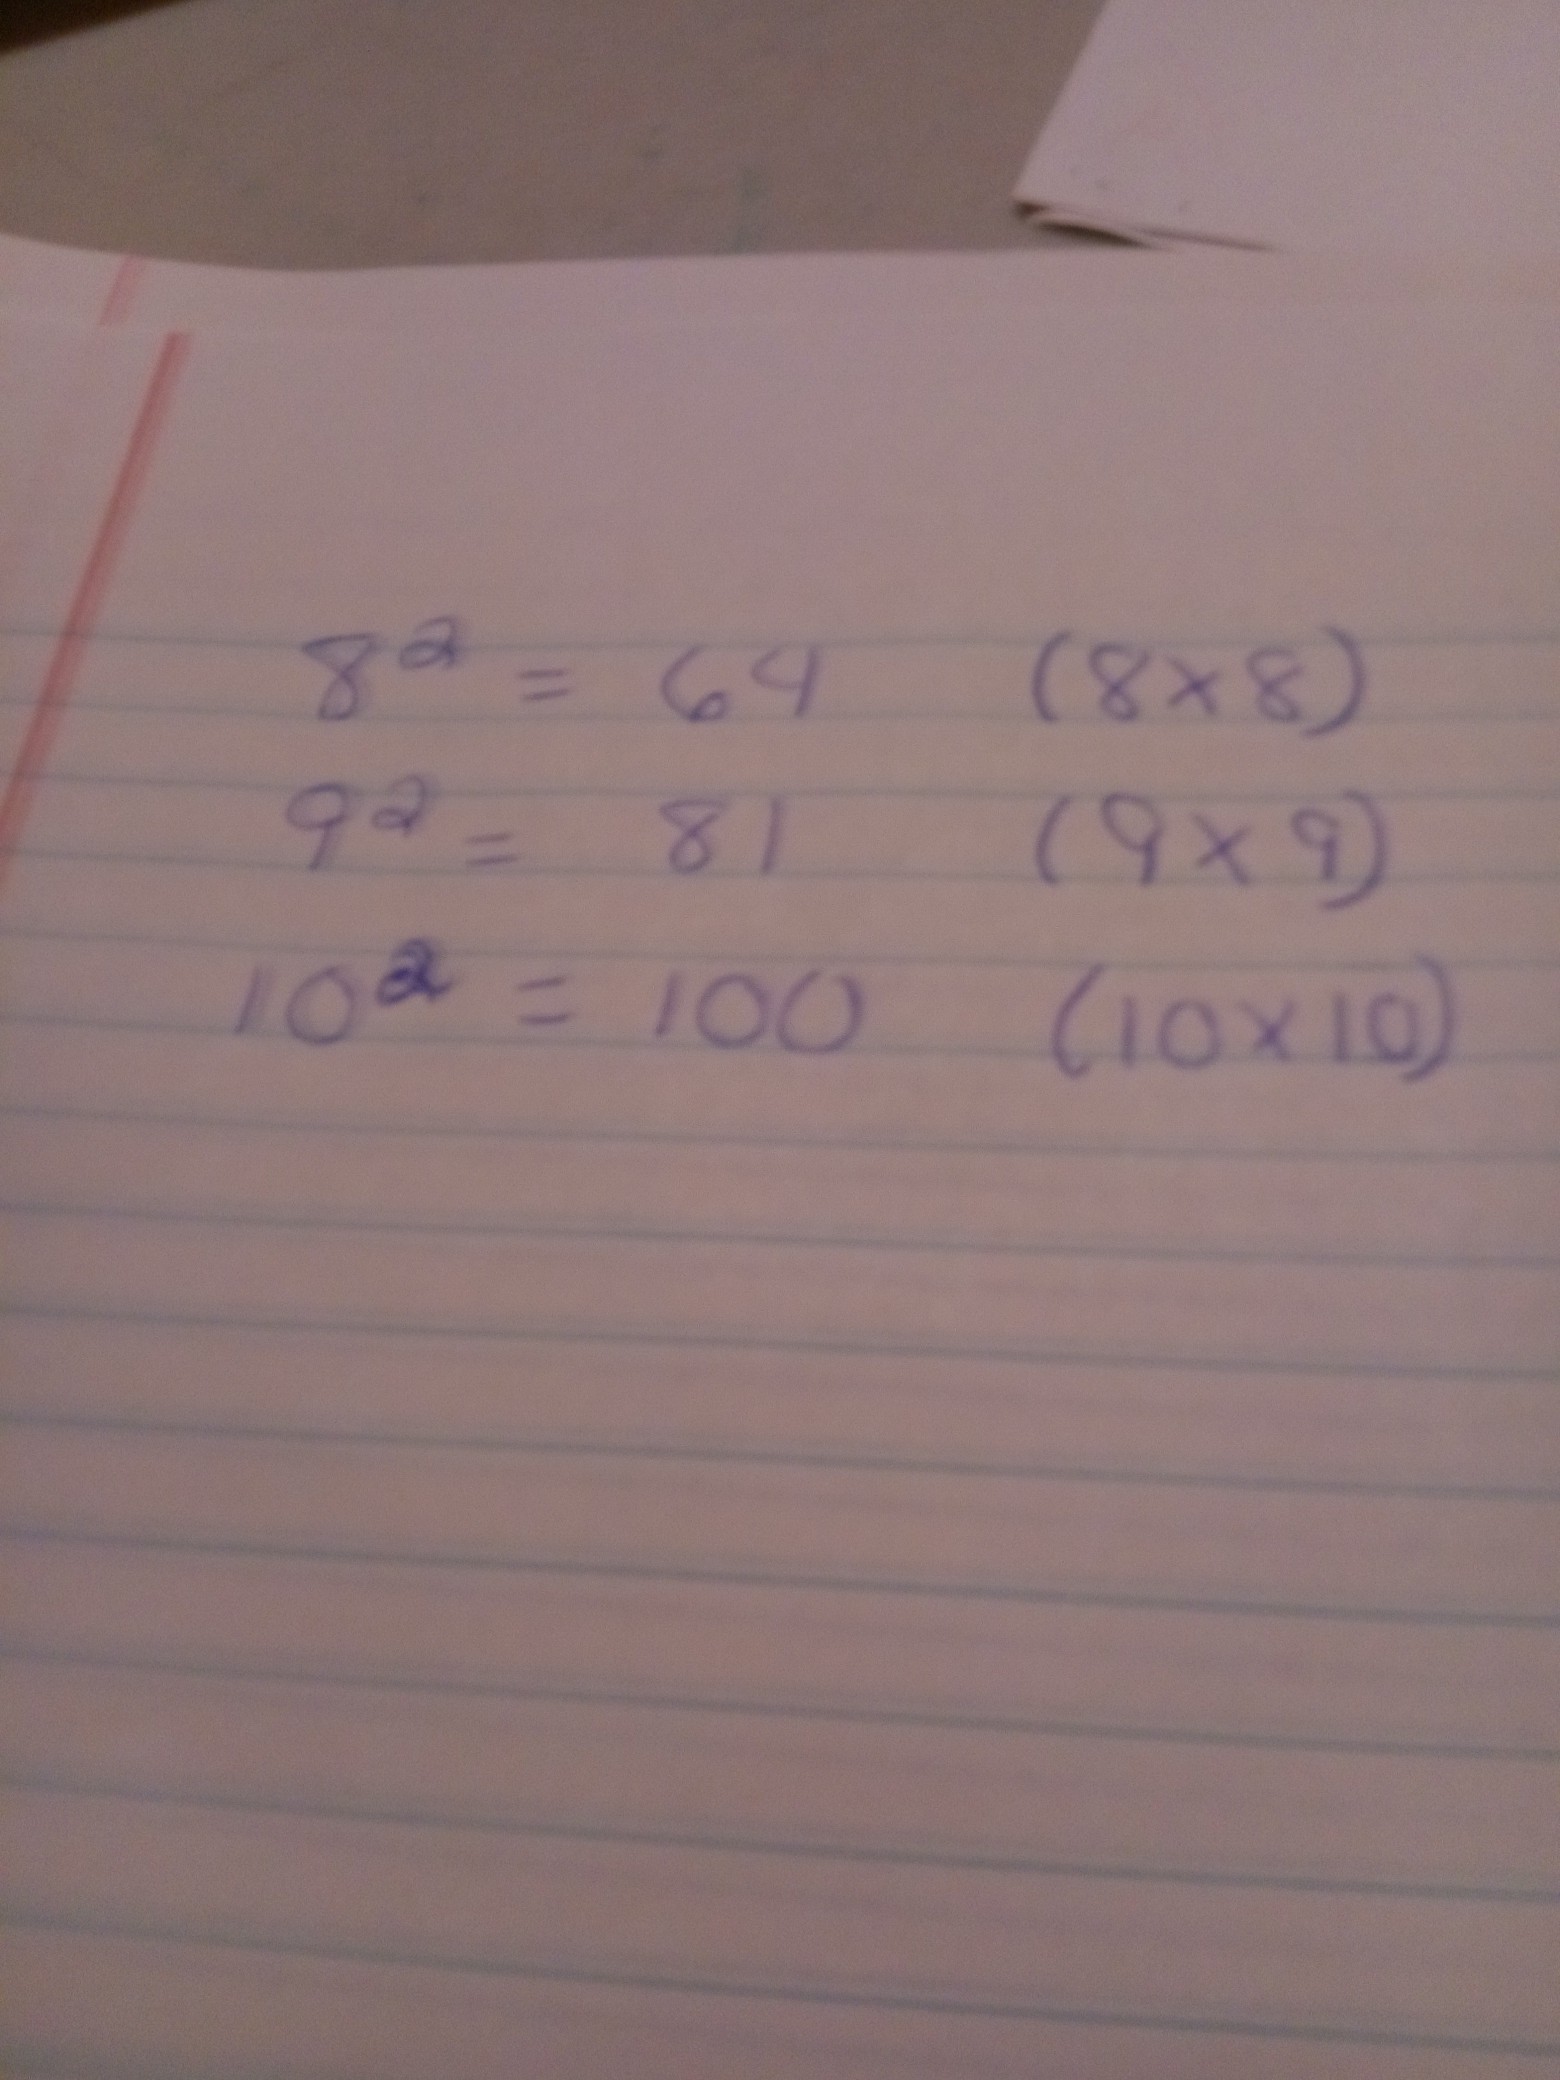 8² = 64 (8×8)
9² = 81 (9×9)
10² = 100 (10×10)